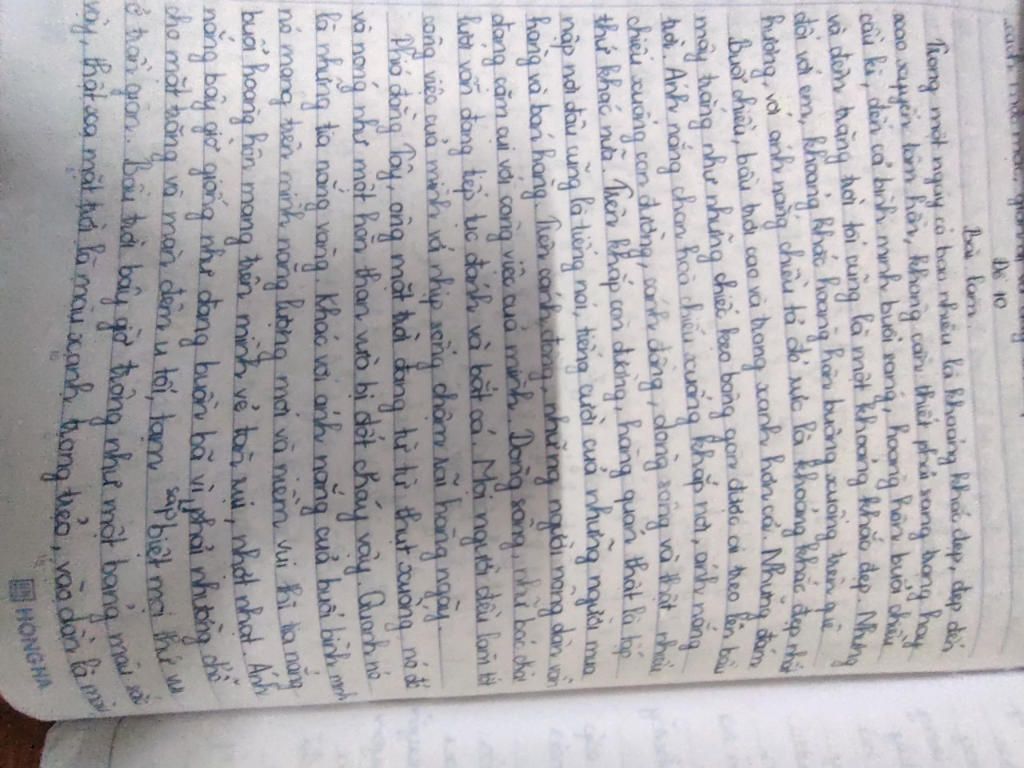 Đề 10
Bài làm
Trong một ngày có bao nhiêu là khoảng khắc đẹp, đẹp đến
xao xuyến tâm hồn, không cần thiết phải sang trọng hay
cầu kì, đến cả bình minh buổi sáng, hoàng hôn buổi chiều
và đêm trăng trời tối cũng là một khoảng khắc đẹp. Nhưng
đối với em, khoảng khắc hoàng hôn buông xuống trên quê
hương, với ánh nắng chiều tà đỏ rực là khoảng khắc đẹp nhất
Buổi chiều, bầu trời cao và trong xanh hơn cả. Những đám
mây trắng như những chiếc kẹo bông gòn được ai treo lên bầu
trời. Ánh nắng chan hoà chiếu xuống khắp nơi, ánh nắng
chiếu xuống con đường, cánh đồng, dòng sông và thật nhiều
thứ khác nữa. Trên khắp con đường, hàng quán thật là tấp
nập nơi đâu cũng là tiếng nói, tiếng cười của những người mua
hàng và bán hàng. Trên cánh đồng, những người nông dân vẫn
đang cặm cụi với công việc của mình. Dòng sông, những bác chài
lưới vẫn đang tiếp tục đánh và bắt cá. Mọi người đều làm tốt
công việc của mình và nhịp sống chậm rãi hàng ngày.
Phía đằng Tây, ông mặt trời đang từ từ thụt xuống, nó đỏ
và nóng như một hòn than vừa bị đốt cháy vậy. Quanh nó
là những tia nắng vàng. Khác với ánh nắng của buổi bình minh
nó mang trên mình năng lượng mới và niềm vui thì tia nắng
buổi hoàng hôn mang trên mình vẻ tàn rụi, nhợt nhạt. Ánh
nắng bây giờ giống như đang buồn bã vì phải nhường chỗ
cho mặt trăng và màn đêm u tối, tạm biệt mọi thứ
sắp
ở trần gian. Bầu trời bây giờ trông như một bảng màu
vậy, thật xa mặt trời là màu xanh trong trẻo, vào dần là màu
HỒNG HÀ